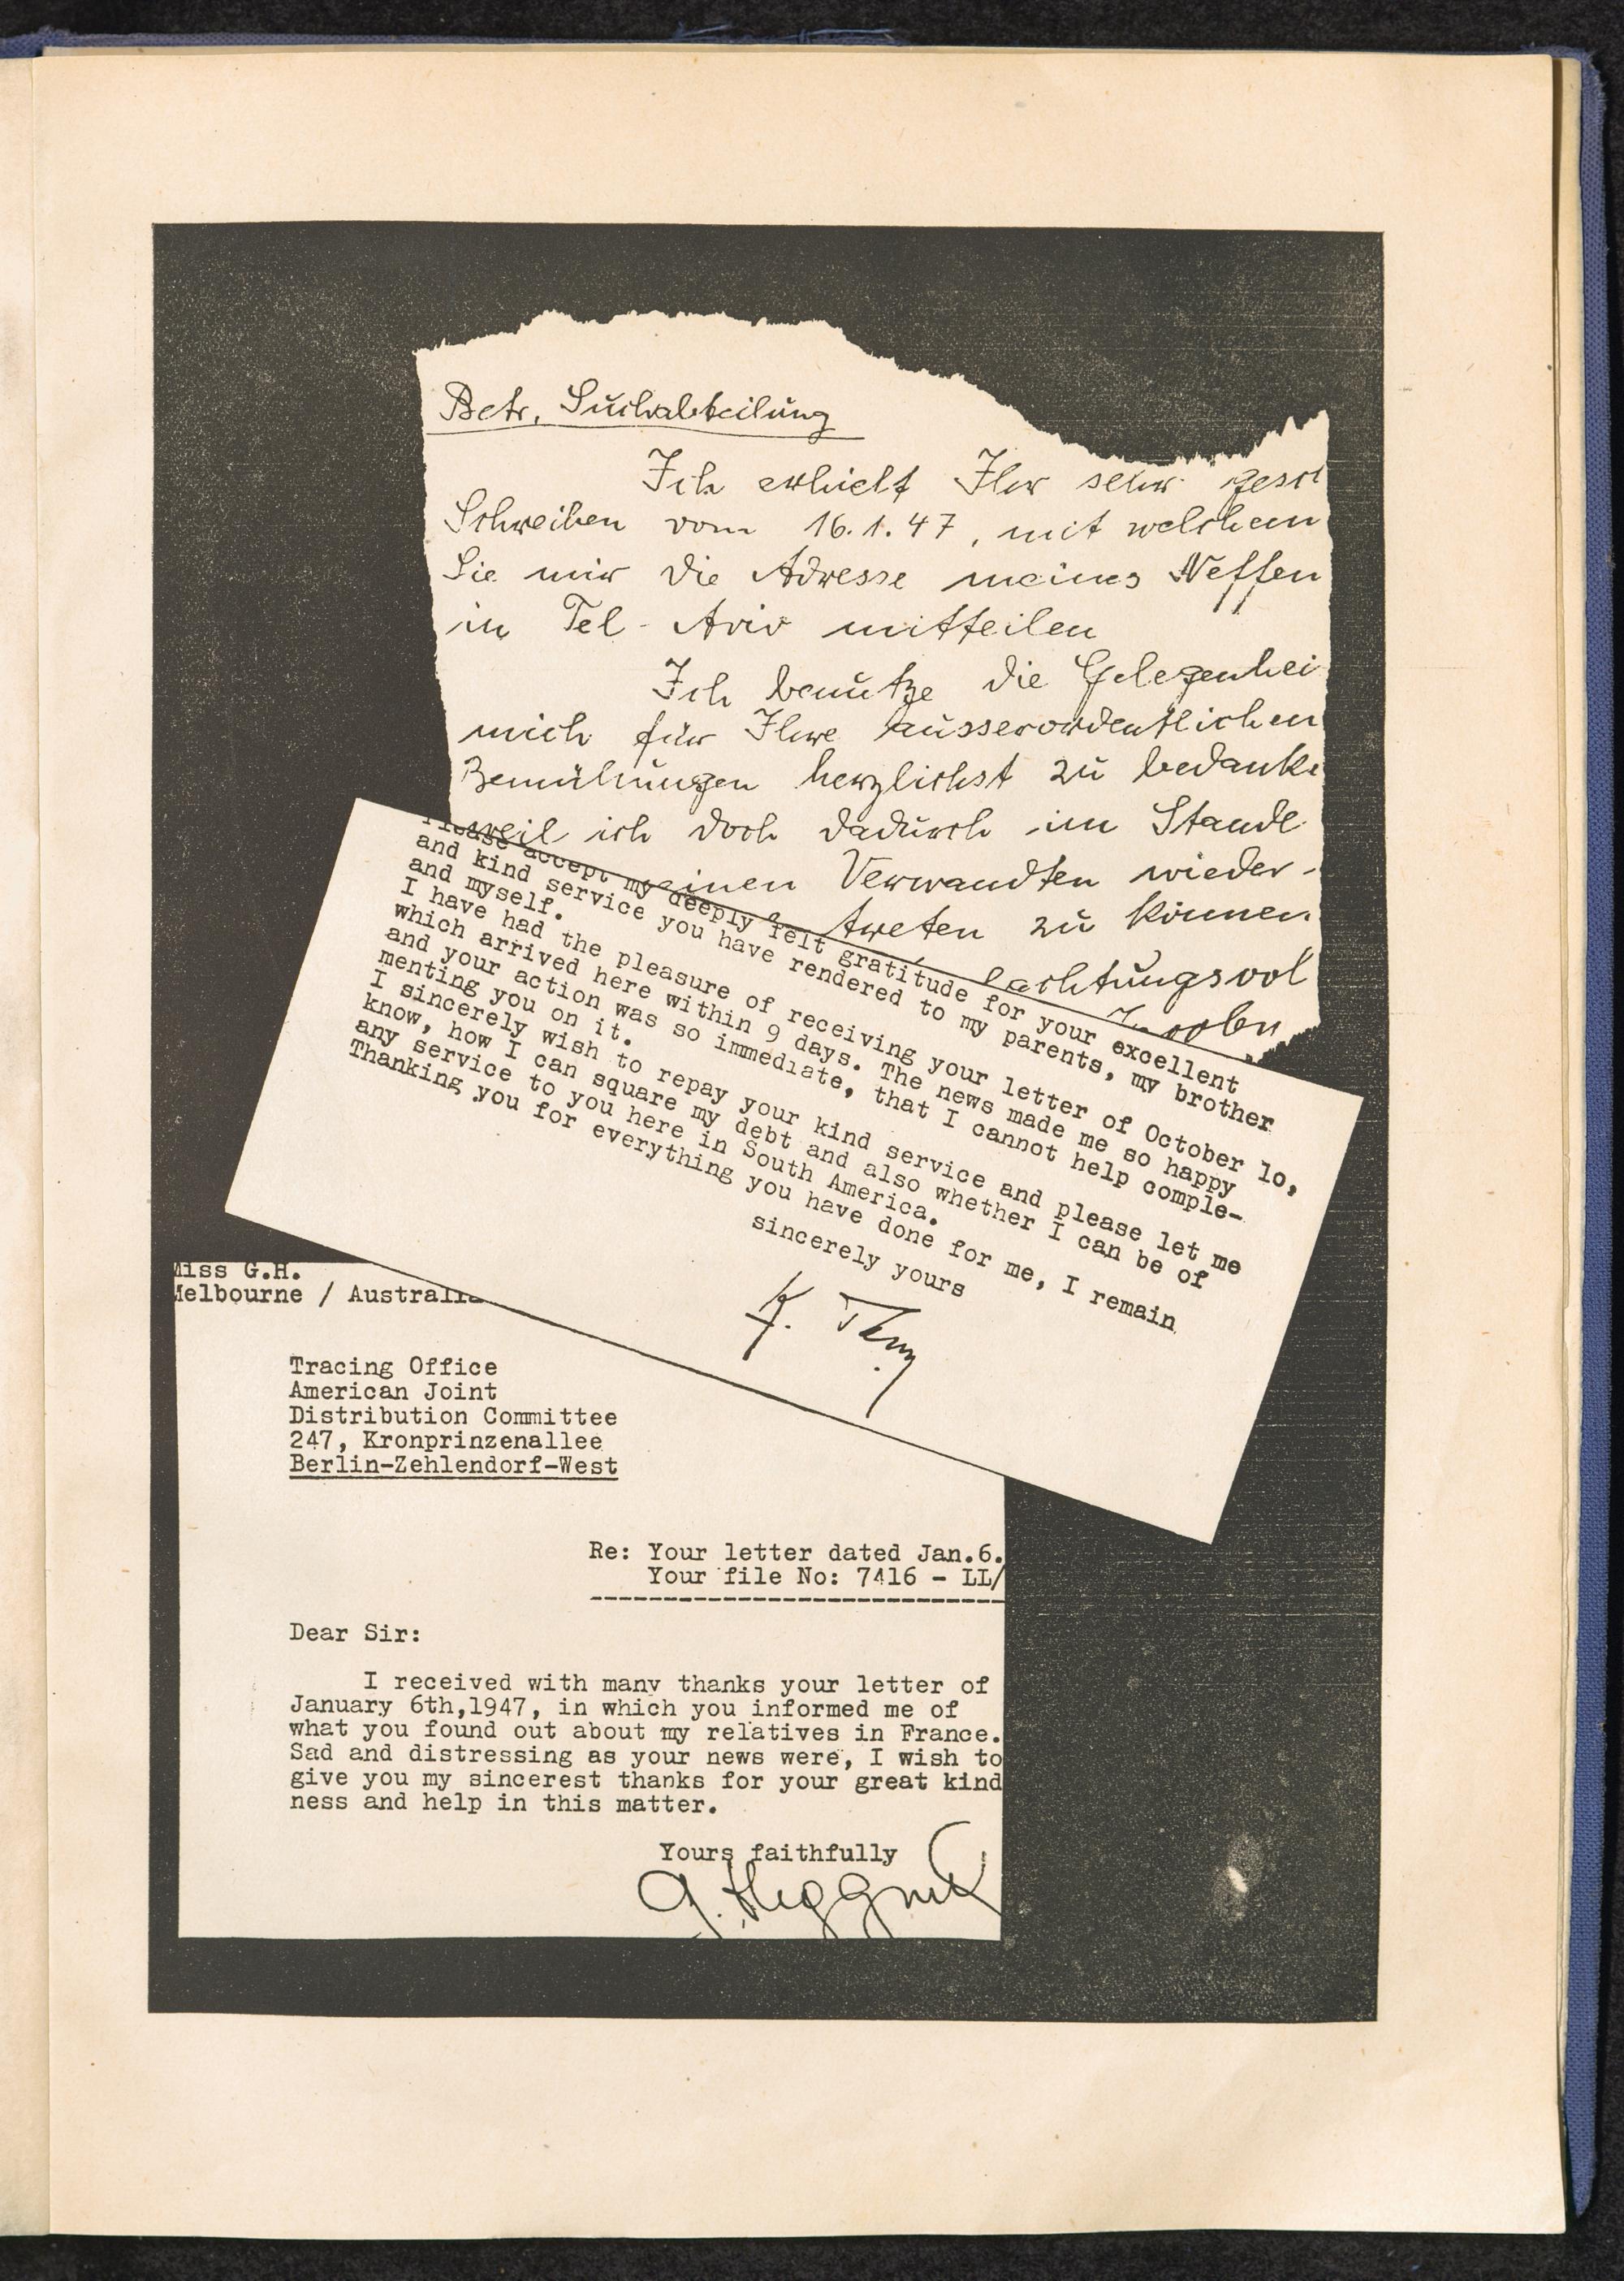 Betr. Suchabteilung
Ich erhielt Ihr sehr
Schreiben vom 16.1.47, mit welchem
Sie mir die Adresse meines Neffen
in Tel-Aviv mitteilen
Ich benutze die Gelegenhei
mich für Ihre ausserordentlichen
Bemühungen herzlichst zu bedanke
weil ich doch dadurch im Stande
einen Verwandten wieder-
treten zu können
achtungsvol
Please accept my deeply felt gratitude for your excellent
and kind service you have rendered to my parents, my brother
and myself.
I have had the pleasure of receiving your letter of October lo,
which arrived here within 9 days. The news made me so happy
and your action was so immediate, that I cannot help comple-
menting you on it.
I sincerely wish to repay your kind service and please let me
know, how I can square my debt and also whether I can be of
any service to you here in South America.
Thanking you for everything you have done for me, I remain
sincerely yours
K.
Miss G.H.
Melbourne / Australia
Tracing Office
American Joint
Distribution Committee
247, Kronprinzenallee
Berlin-Zehlendorf-West
Re: Your letter dated Jan.6.
Your file No: 7416 - LL/
Dear Sir:
I received with many thanks your letter of
January 6th,1947, in which you informed me of
what you found out about my relatives in France.
Sad and distressing as your news were, I wish to
give you my sincerest thanks for your great kind
ness and help in this matter.
Yours faithfully
G.